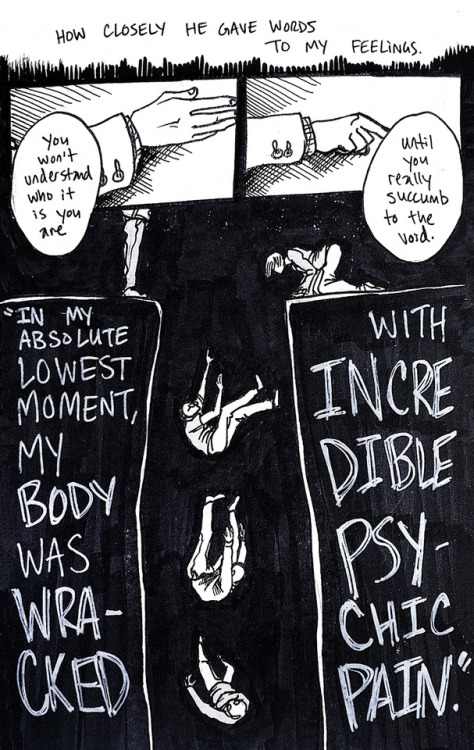 HOW CLOSELY HE GAVE WORDS
TO MY FEELINGS.
you
won't
understand
who it
is you
are
until
you
really
succumb
to the
void.
"IN MY
ABSOLUTE
LOWEST
MOMENT,
MY
BODY
WAS
WRA-
CKED
WITH
INCRE
DIBLE
PSY-
CHIC
PAIN."